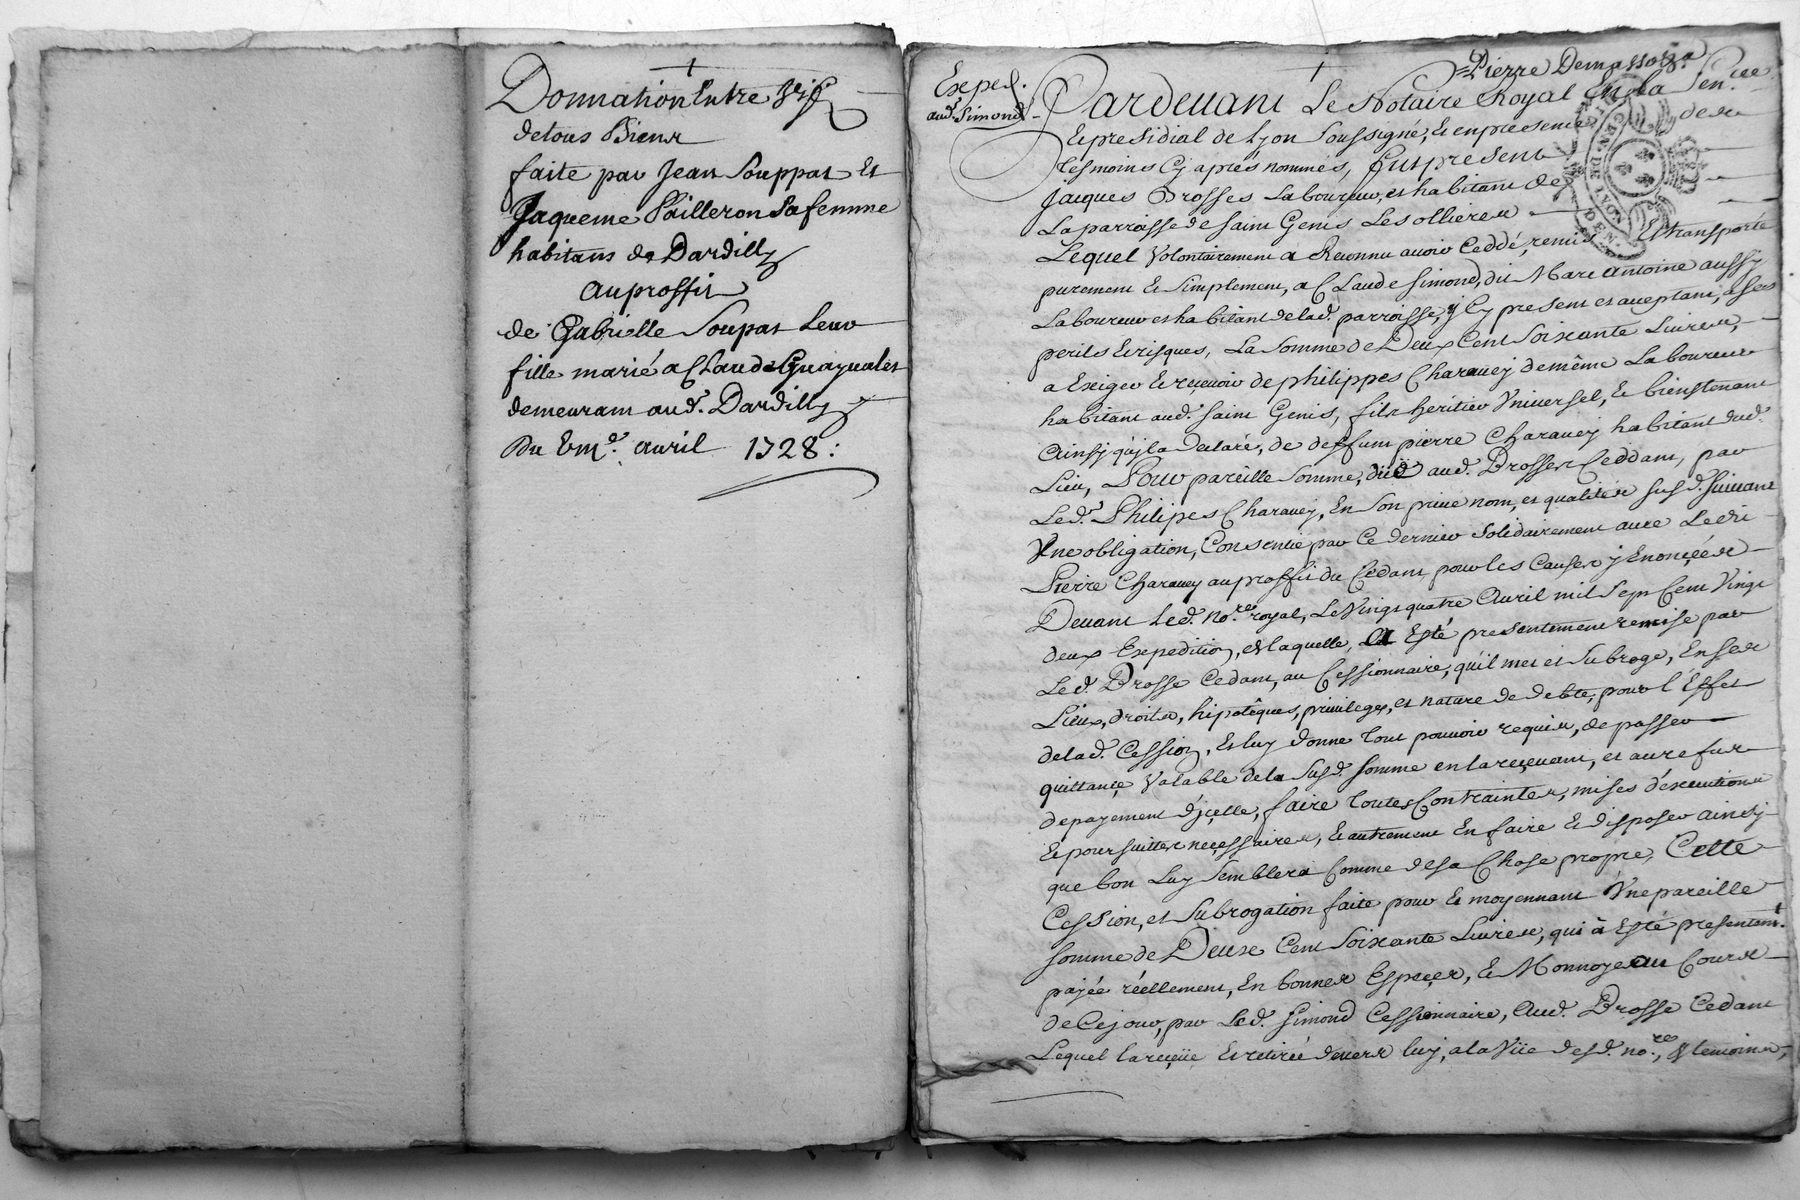 Donnation Entre Vifs
detous Biens
faite par Jean Souppat Et
Jaqueme Pailleron Sa femme
habitans de Dardilly
Au proffit
de Gabrielle Soupat Leur
fille marié a Claude Guayualet
demeurant aud. Dardilly
Du Vme. avril 1728 :
Exped.
aud. Simond
Pierre Demassoz
Pardeuant Le Notaire Royal En la Sen.cee
Et presidial de Lyon Soussigné, Et en presence des
Tesmoins Cy aprés nommés, Fut present
Jacques Brosses Laboureur, et habitant de
La parroisse de Saint Genis Les ollieres
Lequel Volontairement a Reconnu auoir Ceddé, remis Et transporté
purement Et Simplement, a Claude Simond, dit Marc antoine aussy
Laboureur et habitant de lad. parroisse, y Cy present et aceptant, a Ses
perils Et risques, La Somme de Deux Cent Soixante Liures,
a Exiger Et reçeuoir de philippes Charauey de même Laboureur
habitant aud. Saint Genis, fils heritier Vniuersel, Et bienstenant
Ainsy qu'jl a declaré, de deffunt pierre Charauey habitant dud.
Lieu, Pour pareille Somme, düe aud. Brosses Ceddant, par
Led. Philipes Charauey, En Son priué nom, et qualités Susd. Suiuant
Vne obligation, Consentie par Ce dernier Solidairement auec Ledit
Pierre Charauey au proffit du Cedant pour les Causes y Enonçées
Deuant Led. No.re royal, Le Vingt quatre Auril mil Sept Cent Vingt
deux Expedition, de laquelle, a Esté presentement remise par
Led. Brosse Cedant, au Cessionnaire, qu'il met et Subroge, En Ses
Lieux, droits, hipotêques, priuileges, et nature de debte, pour L'Effet
delad. Cession, Et luy donne Tout pouuoir requis, de passer
quittançe Valable dela Susd. Somme en la reçeuant, et au refus
de payement d'jçelle, faire Toutes Contraintes, mises d'éxecutions
Et poursuittes neçessaires, Et autrement En faire Et disposer ainsy
que bon Luy Semblera Comme de sa Chose propre, Cette
Cession, et Subrogation faite pour Et moyennant Vne pareille
Somme de Deux Cent Soixante Liures, qui à Esté presentem.t
payée réellement, En bonnes Espeçes, Et Monnoye au Cours
de Cejour, par Led. Simond Cessionnaire, Aud. Brosse Cedant
Lequel la reçeüe Et retirée deuers luy, a la Vüe desd. no.re, & temoins,
GEN. DE LYON
DEN.